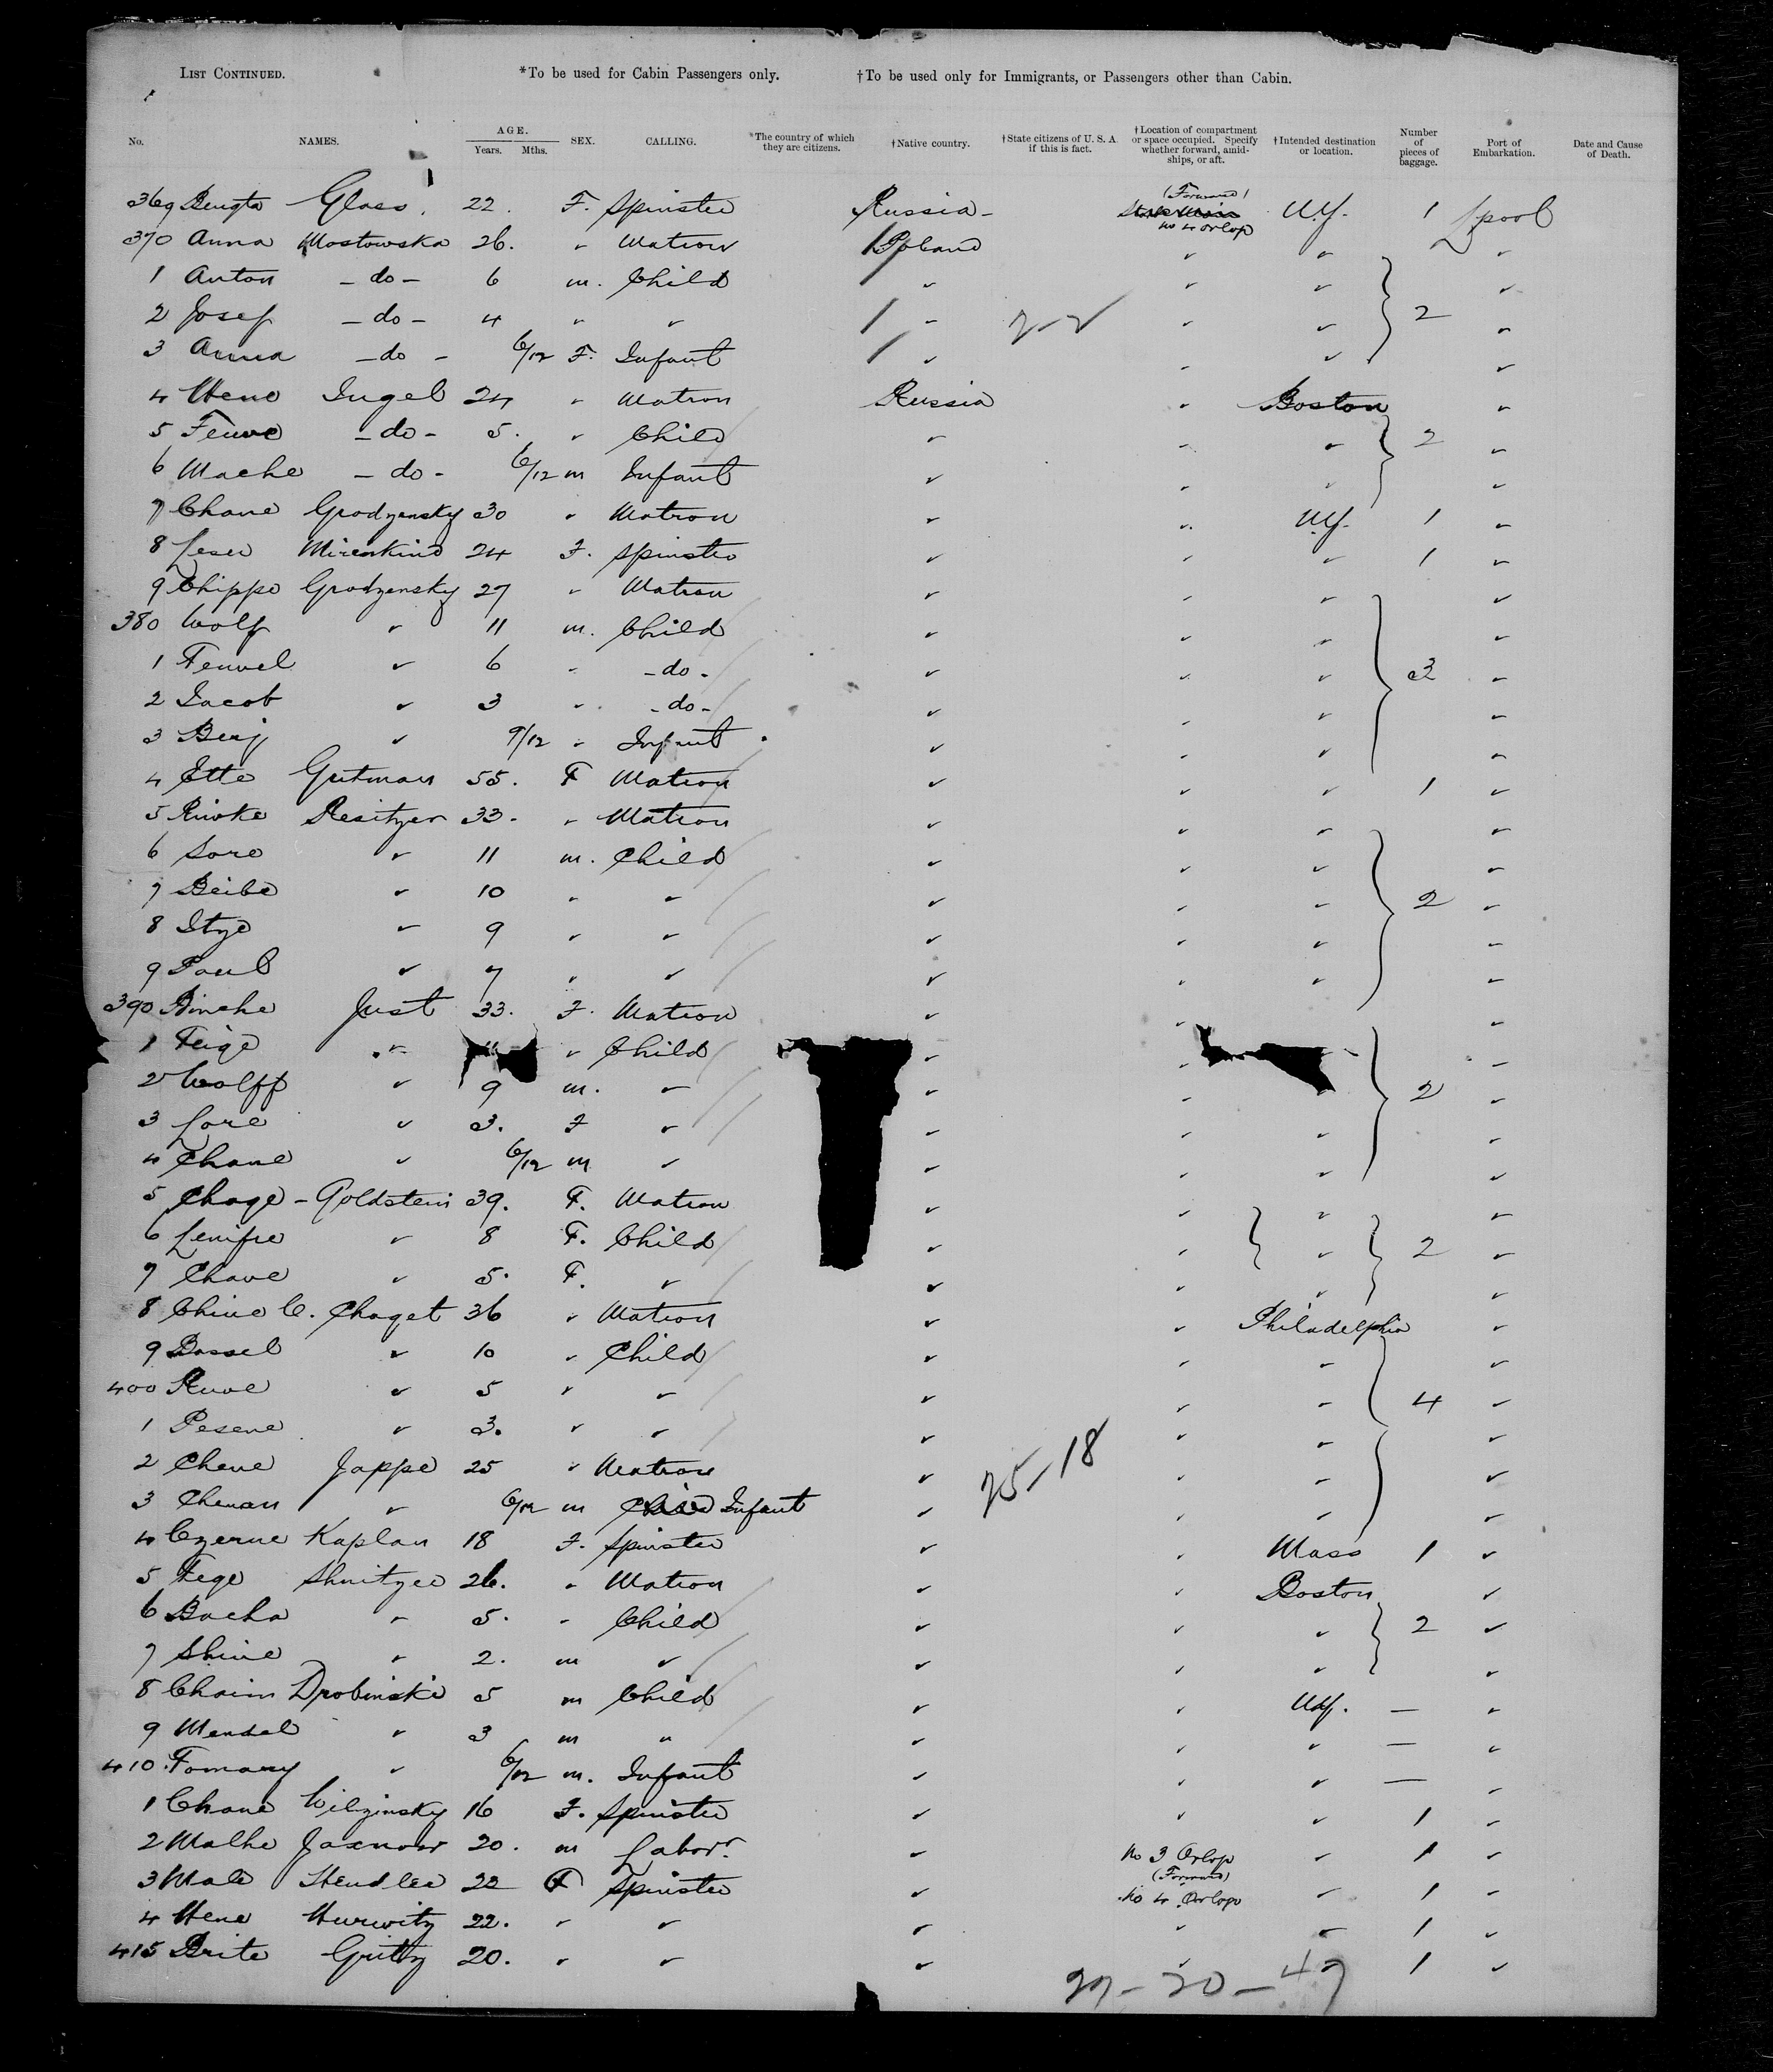 LIST CONTINUED. *To be used for Cabin Passengers only. †To be used only for Immigrants, or Passengers other than Cabin.
No. NAMES. AGE. Years. Mths. SEX. CALLING. *The country of which they are citizens. †Native country. †State citizens of U. S. A. if this is fact. †Location of compartment or space occupied. Specify whether forward, amidships, or aft. †Intended destination or location. Number of pieces of baggage. Port of Embarkation. Date and Cause of Death.
369 Glass. 22. F. Spinster Russia - (Forward) No 4 Orlop N.Y. 1 Lpool
370 Anna Mostowska 26. " Matron Poland " " "
1 Anton - do - 6 m. Child " " " "
2 Josef - do - 4 " " " 2-2 " " 2 "
3 Anna - do - 6/12 F. Infant " " " "
4 Hene Ingel 24 " Matron Russia " Boston "
5 - do - 5. " Child " " " 2 "
6 Mache - do - 6/12 m Infant " " " "
7 Chane Grodzensky 30 " Matron " " N.Y. 1 "
8 Leser Mirenkind 24 F. Spinster " " " 1 "
9 Chippe Grodzensky 27 " Matron " " " "
380 Wolf " 11 m. Child " " " "
1 Feuvel " 6 " - do - " " " 3 "
2 Jacob " 3 " - do - " " " "
3 Benj " 9/12 " Infant " " " "
4 Ette Gutman 55. F Matron " " " 1 "
5 Riwke Resitzer 33. " Matron " " " "
6 Sore " 11 m. Child " " " "
7 Beibe " 10 " " " " " 2 "
8 Itze " 9 " " " " " "
9 Paul " 7 " " " " " "
390 Binche Just 33. F. Matron " " "
1 Feige " " Child " " "
2 Wolff " 9 m. " " " 2 "
3 Lore " 3. F " " " " "
4 Chane " 6/12 m " " " " "
5 Chage - Goldstein 39. F. Matron " " " "
6 " 8 F. Child " " " 2 "
7 Chave " 5. F. " " " " "
8 Chine C. Chaget 36 " Matron " " Philadelphia "
9 Bassel " 10 " Child " " " "
400 Ruve " 5 " " " " " 4 "
1 Pesene " 3. " " " " " "
2 Chene Jappe 25 " Matron " 25-18 " " "
3 Cheman " 6/12 m Child Infant " " " "
4 Czerne Kaplan 18 F. Spinster " " Mass 1 "
5 Fege Shnitzer 26. " Matron " " Boston "
6 Bacha " 5. " Child " " " 2 "
7 Shine " 2. m " " " " "
8 Chaim Drobinski 5 m Child " " N.Y. - "
9 Mendel " 3 m " " " " - "
410 " 6/12 m. Infant " " " - "
1 Chane Wilzinsky 16 F. Spinster " " " 1 "
2 Malhe Jaxnow 20. m Labor. " No 3 Orlop " 1 "
3 Male Hendler 22 F Spinster " (Forward) No 4 Orlop " 1 "
4 Hene Hurwitz 22. " " " " " 1 "
415 Brite Gritz 20. " " " " 1 "
27-20-47